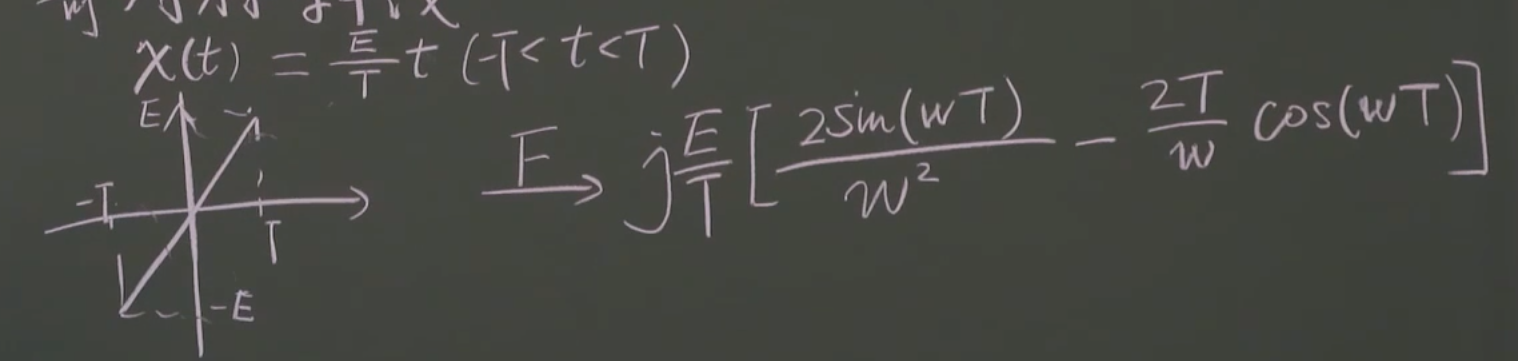 x(t) = E/T t (-T< t<T)
E
-T
T
-E
F→ j E/T [ 2sin(wT)/w² − 2T/w cos(wT) ]